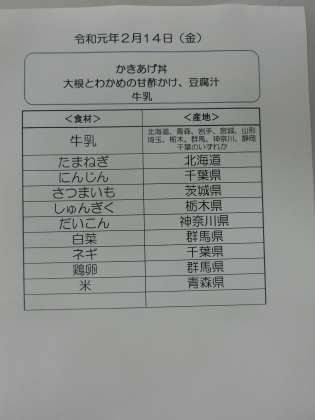 令和元年２月１４日（金）
かきあげ丼
大根とわかめの甘酢かけ、豆腐汁
牛乳
＜食材＞ ＜産地＞
牛乳 北海道、青森、岩手、宮城、山形
埼玉、栃木、群馬、神奈川、静岡
千葉のいずれか
たまねぎ 北海道
にんじん 千葉県
さつまいも 茨城県
しゅんぎく 栃木県
だいこん 神奈川県
白菜 群馬県
ネギ 千葉県
鶏卵 群馬県
米 青森県